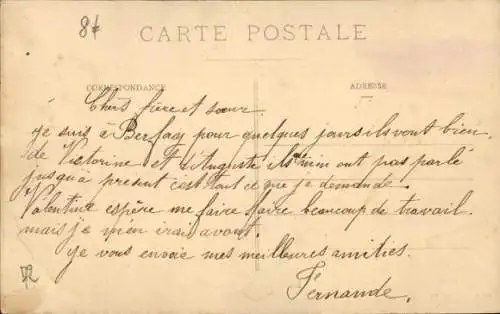 8f
CARTE POSTALE
CORRESPONDANCE
ADRESSE
Chers frère et sœur
je suis à Berfay pour quelques jours ils vont bien
de Victorine et d'Auguste ils m'en ont pas parlé
jusqu'à present c'est tout ce que je demande.
Valentine espère me faire faire beaucoup de travail.
mais je m'en irai avant.
je vous envoie mes meilleures amitiés.
Fernande.